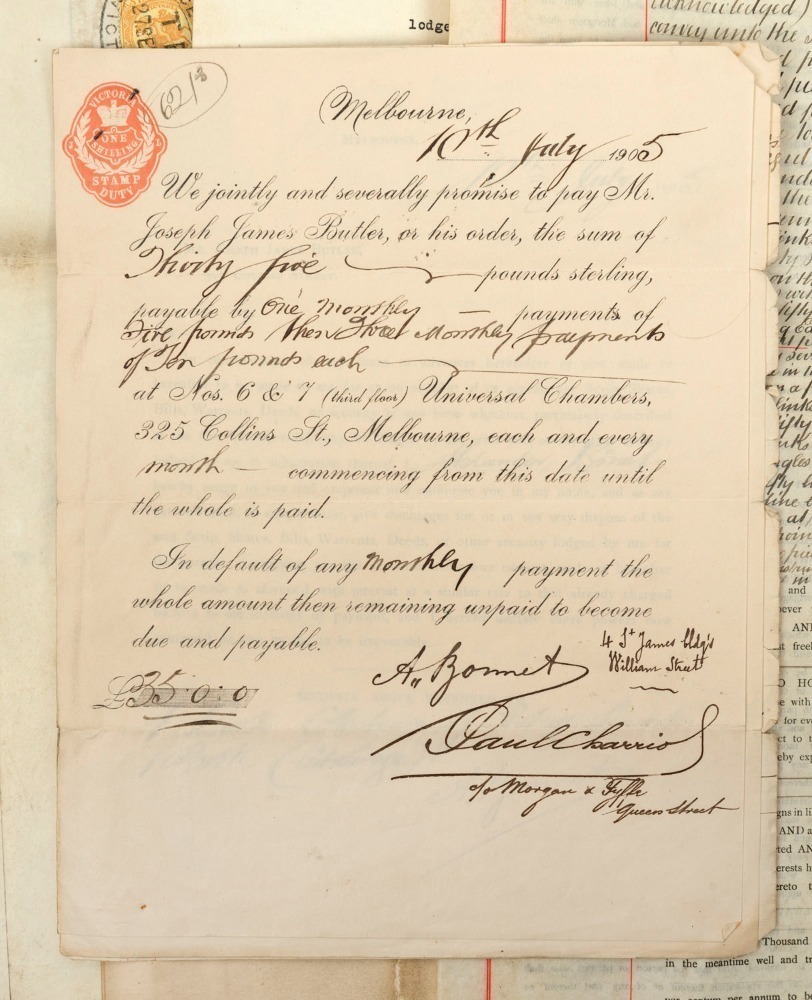 lodge
62/3
VICTORIA
ONE
SHILLING
STAMP
DUTY
Melbourne,
10th July 1905
We jointly and severally promise to pay Mr.
Joseph James Butler, or his order, the sum of
Thirty five pounds sterling,
payable by One monthly — payments of
Five pounds then Three Monthly payments
of Ten pounds each
at Nos. 6 & 7 (third floor) Universal Chambers,
325 Collins St., Melbourne, each and every
month — commencing from this date until
the whole is paid.
In default of any monthly payment the
whole amount then remaining unpaid to become
due and payable.
£35:0:0
A. Bonnet
4 St James bldg's
William Street
Paul Charriol
c/o Morgan & Fyffe
Queen Street
acknowledged)
convey unto the
and
AND
with
for
AND a
Thousand
in the meantime well and
per annum to